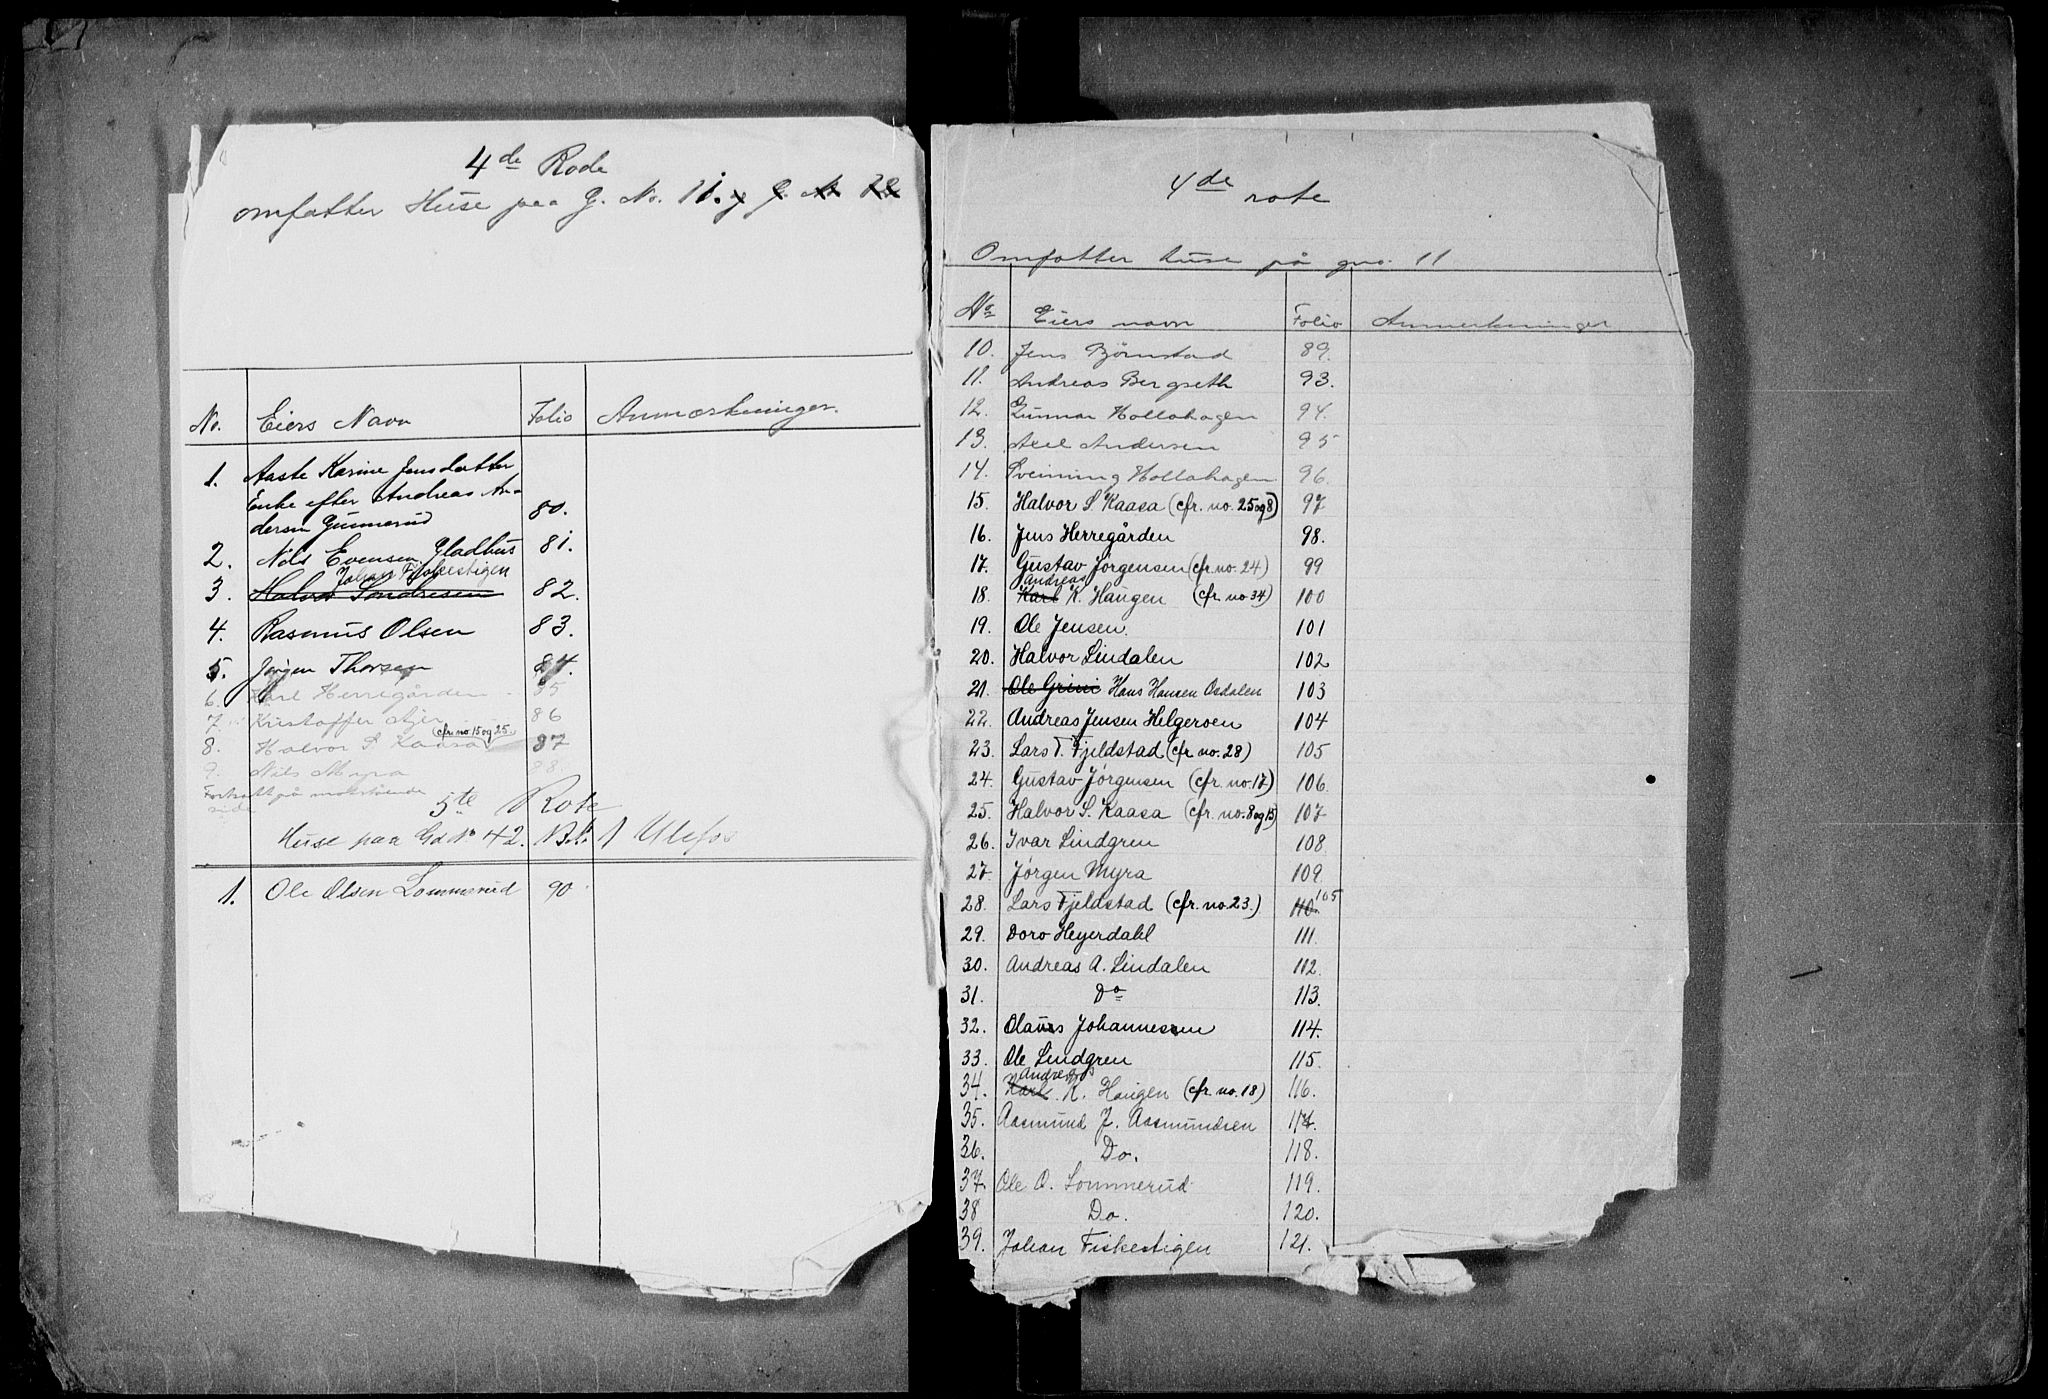 4de Rode
omfatter Huse paa G. No. 11. og G. No 22
No. Eiers Navn Folio Anmærkninger.
1. Aaste Karine Jensdatter
Enke efter Andreas An-
dersen Gunnerud 80.
2. Nils Evensen Gladhus 81.
Johan Fiskestigen
3. Halvor Sondresen 82.
4. Rasmus Olsen 83.
5. Jørgen Thorsen 84.
6. Karl Herregården 85
7. Kristoffer Ajer 86
8. Halvor S. Kaasa (cfr. no 15 og 25.) 87
9. Nils Myra 88.
Fortsatt på motstående
side
5te Rote
Huse paa Gd No 42. B.No 1 Ulefos
1. Ole Olsen Lommerud 90
4de rote
Omfatter huse på gno. 11
No Eiers navn Folio Anmerkninger
10. Jens Bjørnstad 89.
11. Andreas Bergseth 93.
12. Gunnar Hollahagen 94.
13. Axel Andersen 95
14. Sveinung Hollahagen 96.
15. Halvor S. Kaasa (cfr. no. 25 og 8) 97
16. Jens Herregården 98.
17. Gustav Jørgensen (cfr. no. 24) 99
Andreas
18. Karl K. Haugen (cfr. no 34) 100
19. Ole Jensen. 101
20. Halvor Lindalen 102
21. Ole Grini Hans Hansen Osdalen 103
22. Andreas Jensen Helgeroen 104
23. Lars T. Fjeldstad (cfr. no. 28) 105
24. Gustav Jørgensen (cfr. no. 17) 106.
25. Halvor S. Kaasa (cfr. no. 8 og 15) 107
26. Ivar Lindgren 108
27. Jørgen Myra 109.
28. Lars Fjeldstad (cfr. no. 23.) 110. 105
29. Doro Heyerdahl 111.
30. Andreas A. Lindalen 112.
31. Do 113.
32. Olaves Johannesen 114.
33. Ole Lindgren 115.
Andreas
34. Karl K. Haugen (cfr. no. 18) 116.
35. Aasmund J. Aasmundsen 117.
36. Do. 118.
37 Ole O. Lommerud 119.
38 Do. 120.
39. Johan Fiskestigen 121.